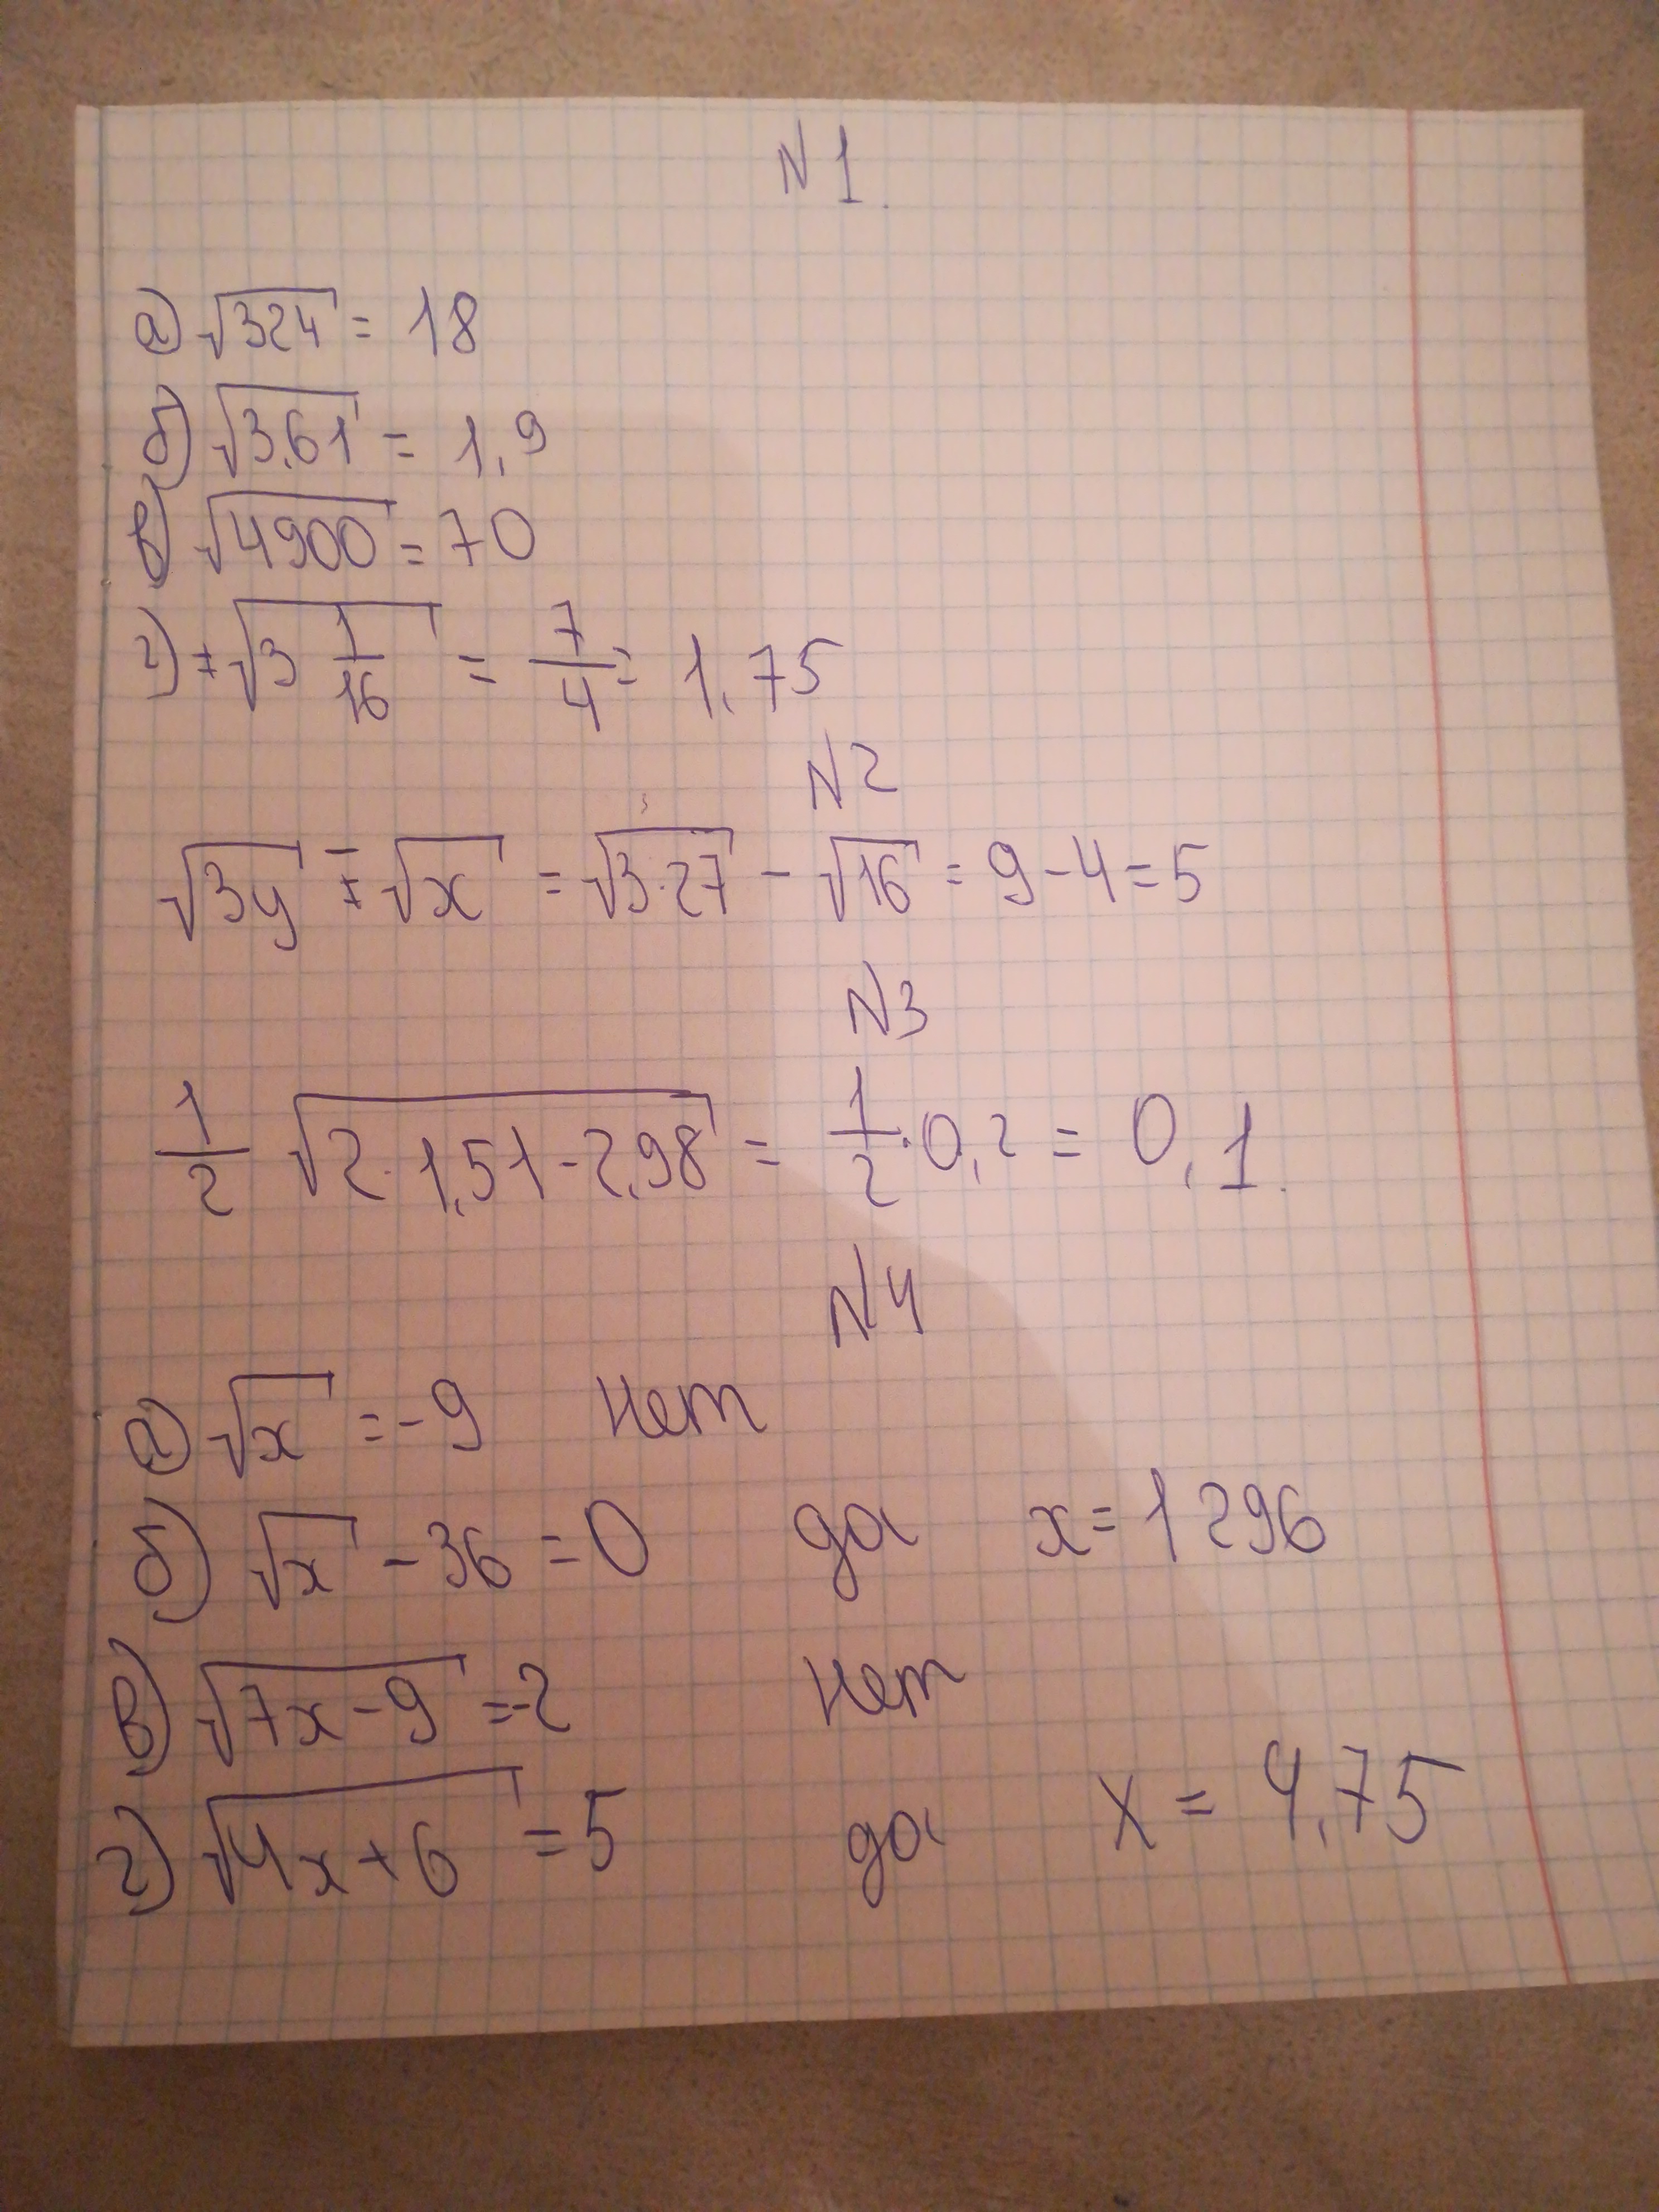 N1.
а) √324 = 18
б) √3,61 = 1,9
в) √4900 = 70
г) ±√3 1/16 = 7/4 = 1,75
N2
√3y ∓ √x = √3·27 - √16 = 9-4=5
N3
1/2 √2·1,51-2,98 = 1/2·0,2 = 0,1.
N4
а) √x =-9 нет
б) √x - 36 =0 да x=1296
в) √7x-9 =-2 нет
г) √4x+6 =5 да x = 4,75